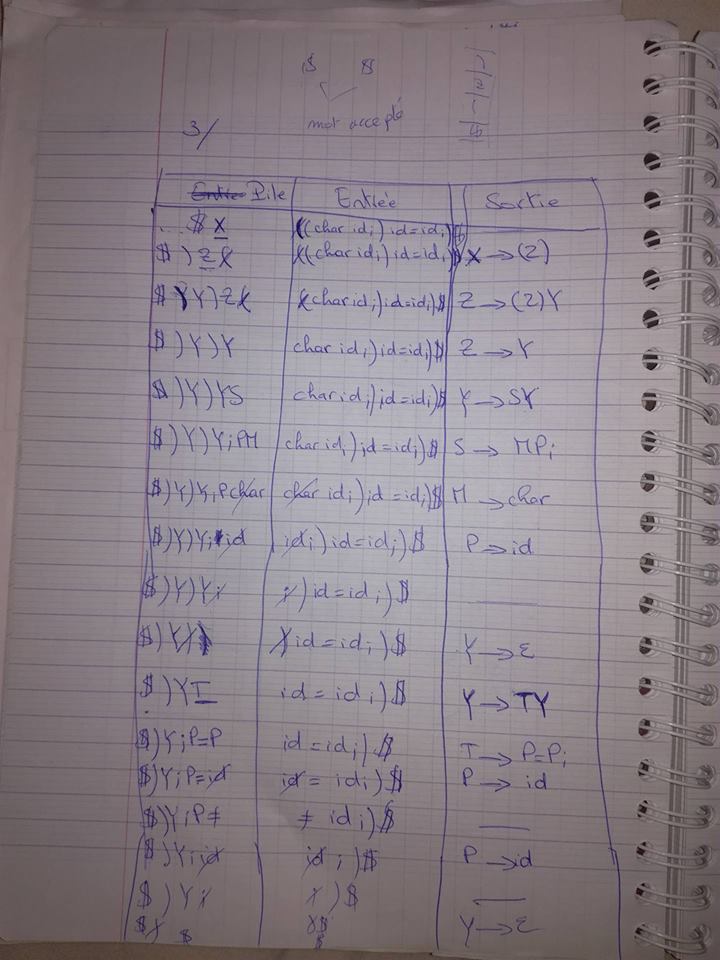 $ $
mot accepté
3/
Pile Entrée Sortie
$ X ((char id;) id=id;)$
$ ) Z ( ((char id;) id=id;)$ X → (Z)
$ )Y)Z( (char id;) id=id;)$ Z → (Z)Y
$ )Y)Y char id;) id=id;)$ Z → Y
$ )Y)YS char id;) id=id;)$ Y → SY
$ )Y)Y;PM char id;) id=id;)$ S → MP;
$)Y)Y;Pchar char id;) id=id;)$ M → char
$)Y)Y;id id;) id=id;)$ P → id
$)Y)Y; ;) id=id;)$ ___
$)Y) ) id=id;)$ Y → ε
$ )YT id = id;)$ Y → TY
$)Y;P=P id = id;)$ T → P=P;
$)Y;P=id id = id;)$ P → id
$)Y;P= = id;)$ ___
$ )Y;id id ;)$ P → id
$ ) Y; ;)$ ___
$) )$ Y → ε
$ $